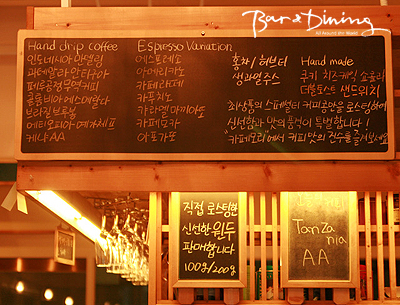 Bar & Dining
All Around the World
Hand drip coffee
인도네시아 만델링
과테말라 안티구아
페루 공정무역커피
콜롬비아 에스메랄다
브라질 버본
에티오피아 예가체프
케냐 AA
Espresso Variation
에스프레소
아메리카노
카페라떼
카푸치노
카라멜 마끼아또
카페모카
아포가또
홍차 / 허브티
생과일 주스
Hand made
쿠키 치즈케익
더블토스트 샌드위치
최상품의 스페셜티 커피콩만을 로스팅하여
신선함과 맛의 품격이 특별합니다!
커피 맛의 진수를 즐겨보세요
직접 로스팅한
신선한 원두
판매합니다
100g/200g
TanZa
nia
AA